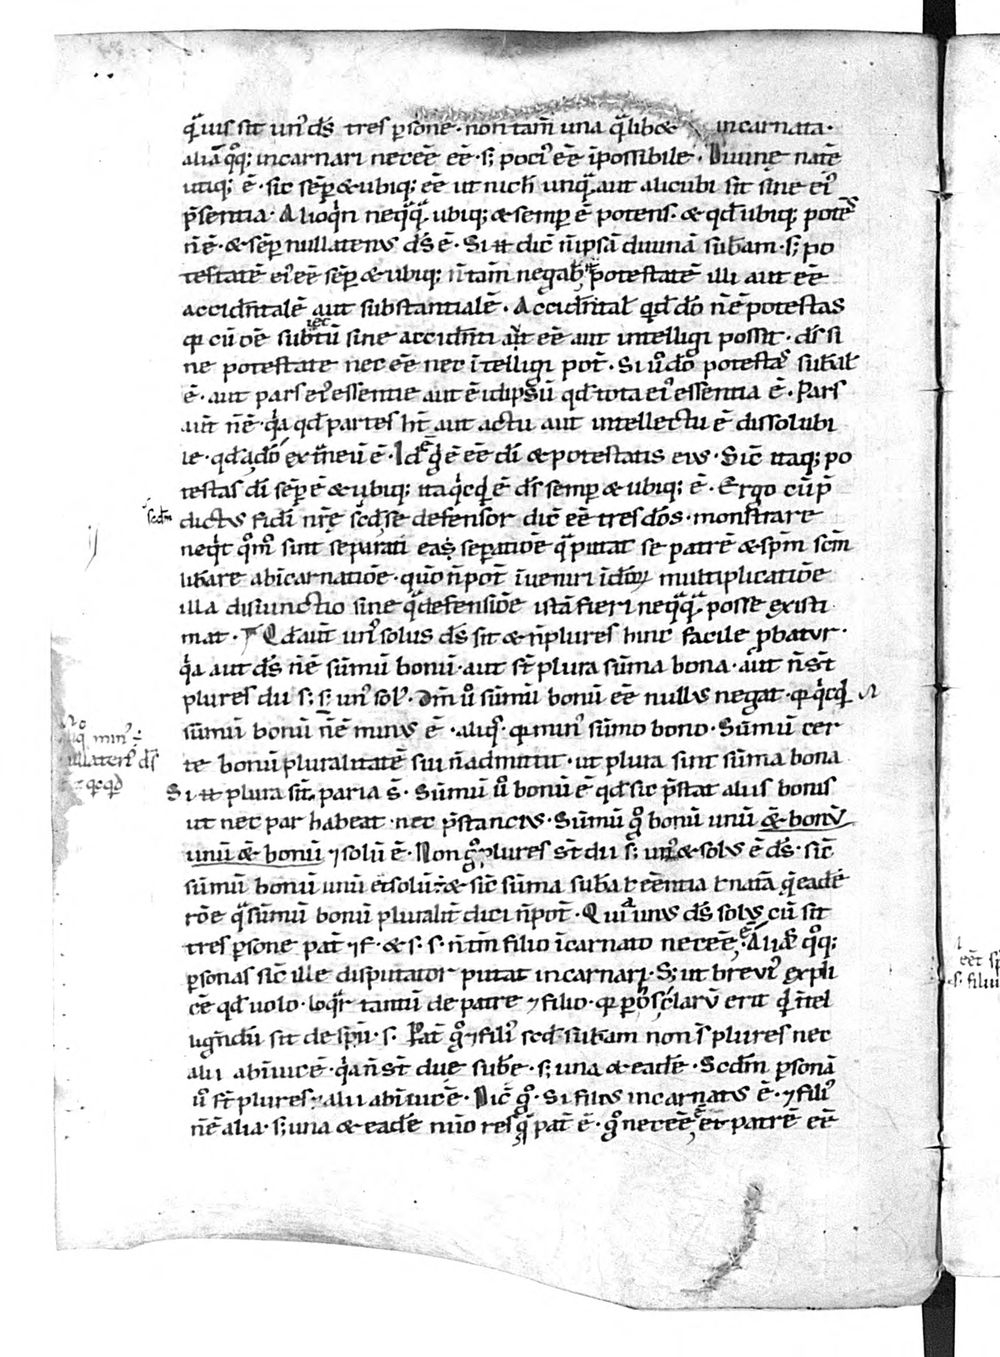 qͣuis sit un᷒ ds̄ tres ꝑsone · non tam̄ una qͣlib& incarnata ·
aliā qͦq; incarnari necēē ēē · s; poci᷒ ēē īpossibile · Diuine natē
utiq; ē · sic sēp & ubiq; ēē ut nich̄ unqͣ aut alicubi sit sine ei᷒
p̄sentia · Alioqͥn neqͣqͣ ubiq; & semper ē potens · & qd̄ ubiq; potēs
n̄ ē · & sēp nullatenus ds̄ ē · Si ħ dic̄ n̄ ip̄sā diuinā sub̄am · s; po
testatē ei᷒ ēē sēp & ubiq; n̄ tam̄ negab̄ potestatē illi aut ēē
accidn̄talē aut substantialē · Accidn̄tal̄ qd̄ dō n̄ ē potestas
q cū om̄e subiectū sine accidn̄ti aut ēē aut intelligi possit · ds̄ si
ne potestate nec ēē nec ītelligi pot̄ · Si u᷒ dō potestas sub̄al̄
ē · aut pars ei᷒ essentie aut ē idip̄sū qd̄ tota ei᷒ essentia ē · Pars
aut̄ n̄ ē · qͥa qd̄ partes ht̄ aut actu aut intellectu ē dissolubi
le · qd̄ a dō ext͛neū ē · Idē gͦ ē ēē dī & potestatis eius · Sic̄ itaq; po
testas dī sēp ē & ubiq; ita qͥcqͥd ē ds̄ semper & ubiq; ē · Ergo cū p̄
scdm̄ dictus fidī nr̄e sed̄ se defensor dic̄ ēē tres dōs · monstrare
neqͥt qͦm̄ sint separati eas̄ separatiōe qͣ putat se patrē & sp̄m scm̄
lib̄are ab īcarnatiōe · quō n̄ pot̄ īueniri ī dōꝝ multiplicatiōe
illa disiunctio sine qͣ defensiōe istā fieri neqͣqͣ posse existi
mat · Qd̄ aut̄ un᷒ solus ds̄ sit & n̄ plures hinc facile ꝓbatur ·
qͥa aut ds̄ n̄ ē sūmū bonū · aut st̄ plura sūma bona · aut n̄ st̄
plures dii s; un᷒ sol᷒ · Dm̄ u᷒ sūmū bonū ēē nullus negat · q qͥcqͥd
sūmū bonū n̄ ē minus ē · aliqͦ · q min᷒ sūmo bono · Sūmū cer
te bonū pluralitatē sui n̄ admittit · ut plura sint sūma bona
Si ħ plura sīt, paria s̄ · Sūmū u᷒ bonū ē qd̄ sic p̄stat aliis bonis
ut nec par habeat · nec p̄stancius · Sūmū gͦ bonū unū & bonū
unū & bonū ⁊ solū ē · Non gͦ plures st̄ dii s; un᷒ & solus ē ds̄ · sic̄
sūmū bonū unū et solū · & sic̄ sūma sub̄a ł ēēntia ł natā qͥ eadē
rōe qͣ sūmū bonū pluralit̄ dici n̄ pot̄ · Qui unus ds̄ solus cū sit
tres ꝑsone pat̄ ⁊ f · & s · s · n̄ tm̄ filio īcarnato necēē ē · Aliās qͦq;
ꝑsonas sic̄ ille disputator putat incarnari · S; ut breui᷒ expli
cē qd̄ uolo · loqͣr tantū de patre ⁊ filio · q ꝑ hos clarū erit qͥ ītel
ligēdū sit de sp̄u · s · Pat̄ gͦ ⁊ fili᷒ scd̄ · sub̄am non s̄ plures nec
alii ab īuicē · qͥa n̄ st̄ due sub̄e · s; una & eadē · Scdm̄ ꝑsonā
u᷒ st̄ plures · ⁊ alii ab īuicē · Dic̄ gͦ · Si filius incarnatus ē · ⁊ fili᷒
n̄ ē alia · s; una & eadē nūo res qͣ pat̄ ē · gͦ necēē ē et patrē ēē